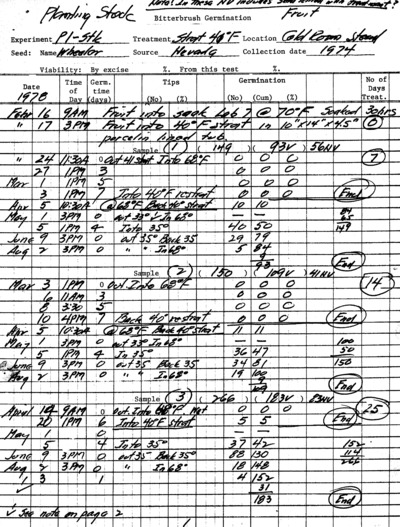 Planting Stock
Note! In these NV means
Bitterbrush Germination Fruit
Experiment P1-Stk Treatment Strat 40°F Location Cold Room Stored
Seed: Name Wheeler Source Nevada Collection date 1974
Viability: By excise % From this test %
Date Time of Day Germ. time (days) Tips (No) (%) Germination (No) (Cum) (%) No of Days Treat.
1978
Febr 16 9AM Fruit into soak Lab 7 @ 70°F Soaked 30hrs
" 17 3PM Fruit into 40°F strat in 10"x14"x4.5" 0
porcelin lined tub.
Sample (1) (149) (93V) 56NV
" 24 11:30A 0 Out 41 strat Into 68°F 0 0 0 7
27 1PM 3 0 0 0
Mar 1 1PM 5 0 0 0
3 1PM 7 Into 40°F restrat 0 0 0 End
Apr 5 10:30A @68°F Back 40° strat 10 10
May 1 3PM 0 out 35° In 68° — — 84
5 1PM 4 Into 35° 40 50 65
149
June 9 3PM 0 out 35° Back 35 29 79
Aug 2 3PM 0 " " In 68° 5 84
9
93 End
Sample (2) (150) (109V) 41NV
Mar 3 1PM 0 Out Into 68°F 0 0 0 14
6 11AM 3 0 0 0
8 3:30 5 0 0 0
10 4PM 7 Back 40° restrat 0 0 0 End
Apr 5 10:30A @68°F Back 40° strat 11 11
May 1 3PM 0 out 35° In 68° — — 100
5 1PM 4 In 35° 36 47 50
June 9 3PM 0 out 35 Back 35 34 81 150
Aug 2 3PM 0 " " In 68° 19 100
9
109 End
Sample (3) (266) (183V) 83NV
April 14 9AM 0 out Into 68°F 0 0 0 25
20 1PM 6 Into 40°F strat 5 5 End
May 0 — —
5 4 Into 35° 37 42 152
June 9 3PM 0 out 35° Back 35° 88 130 114
Aug 2 3PM 0 " In 68° 18 148 266
3 1 4 152
31
183 End
✓ See note on page 2
1